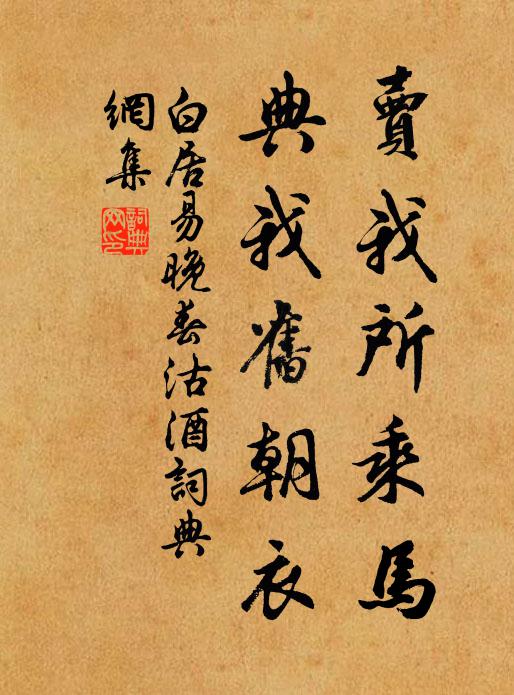 賣我所乘馬
典我舊朝衣
白居易晚春沽酒詞典
網集
詞典網印